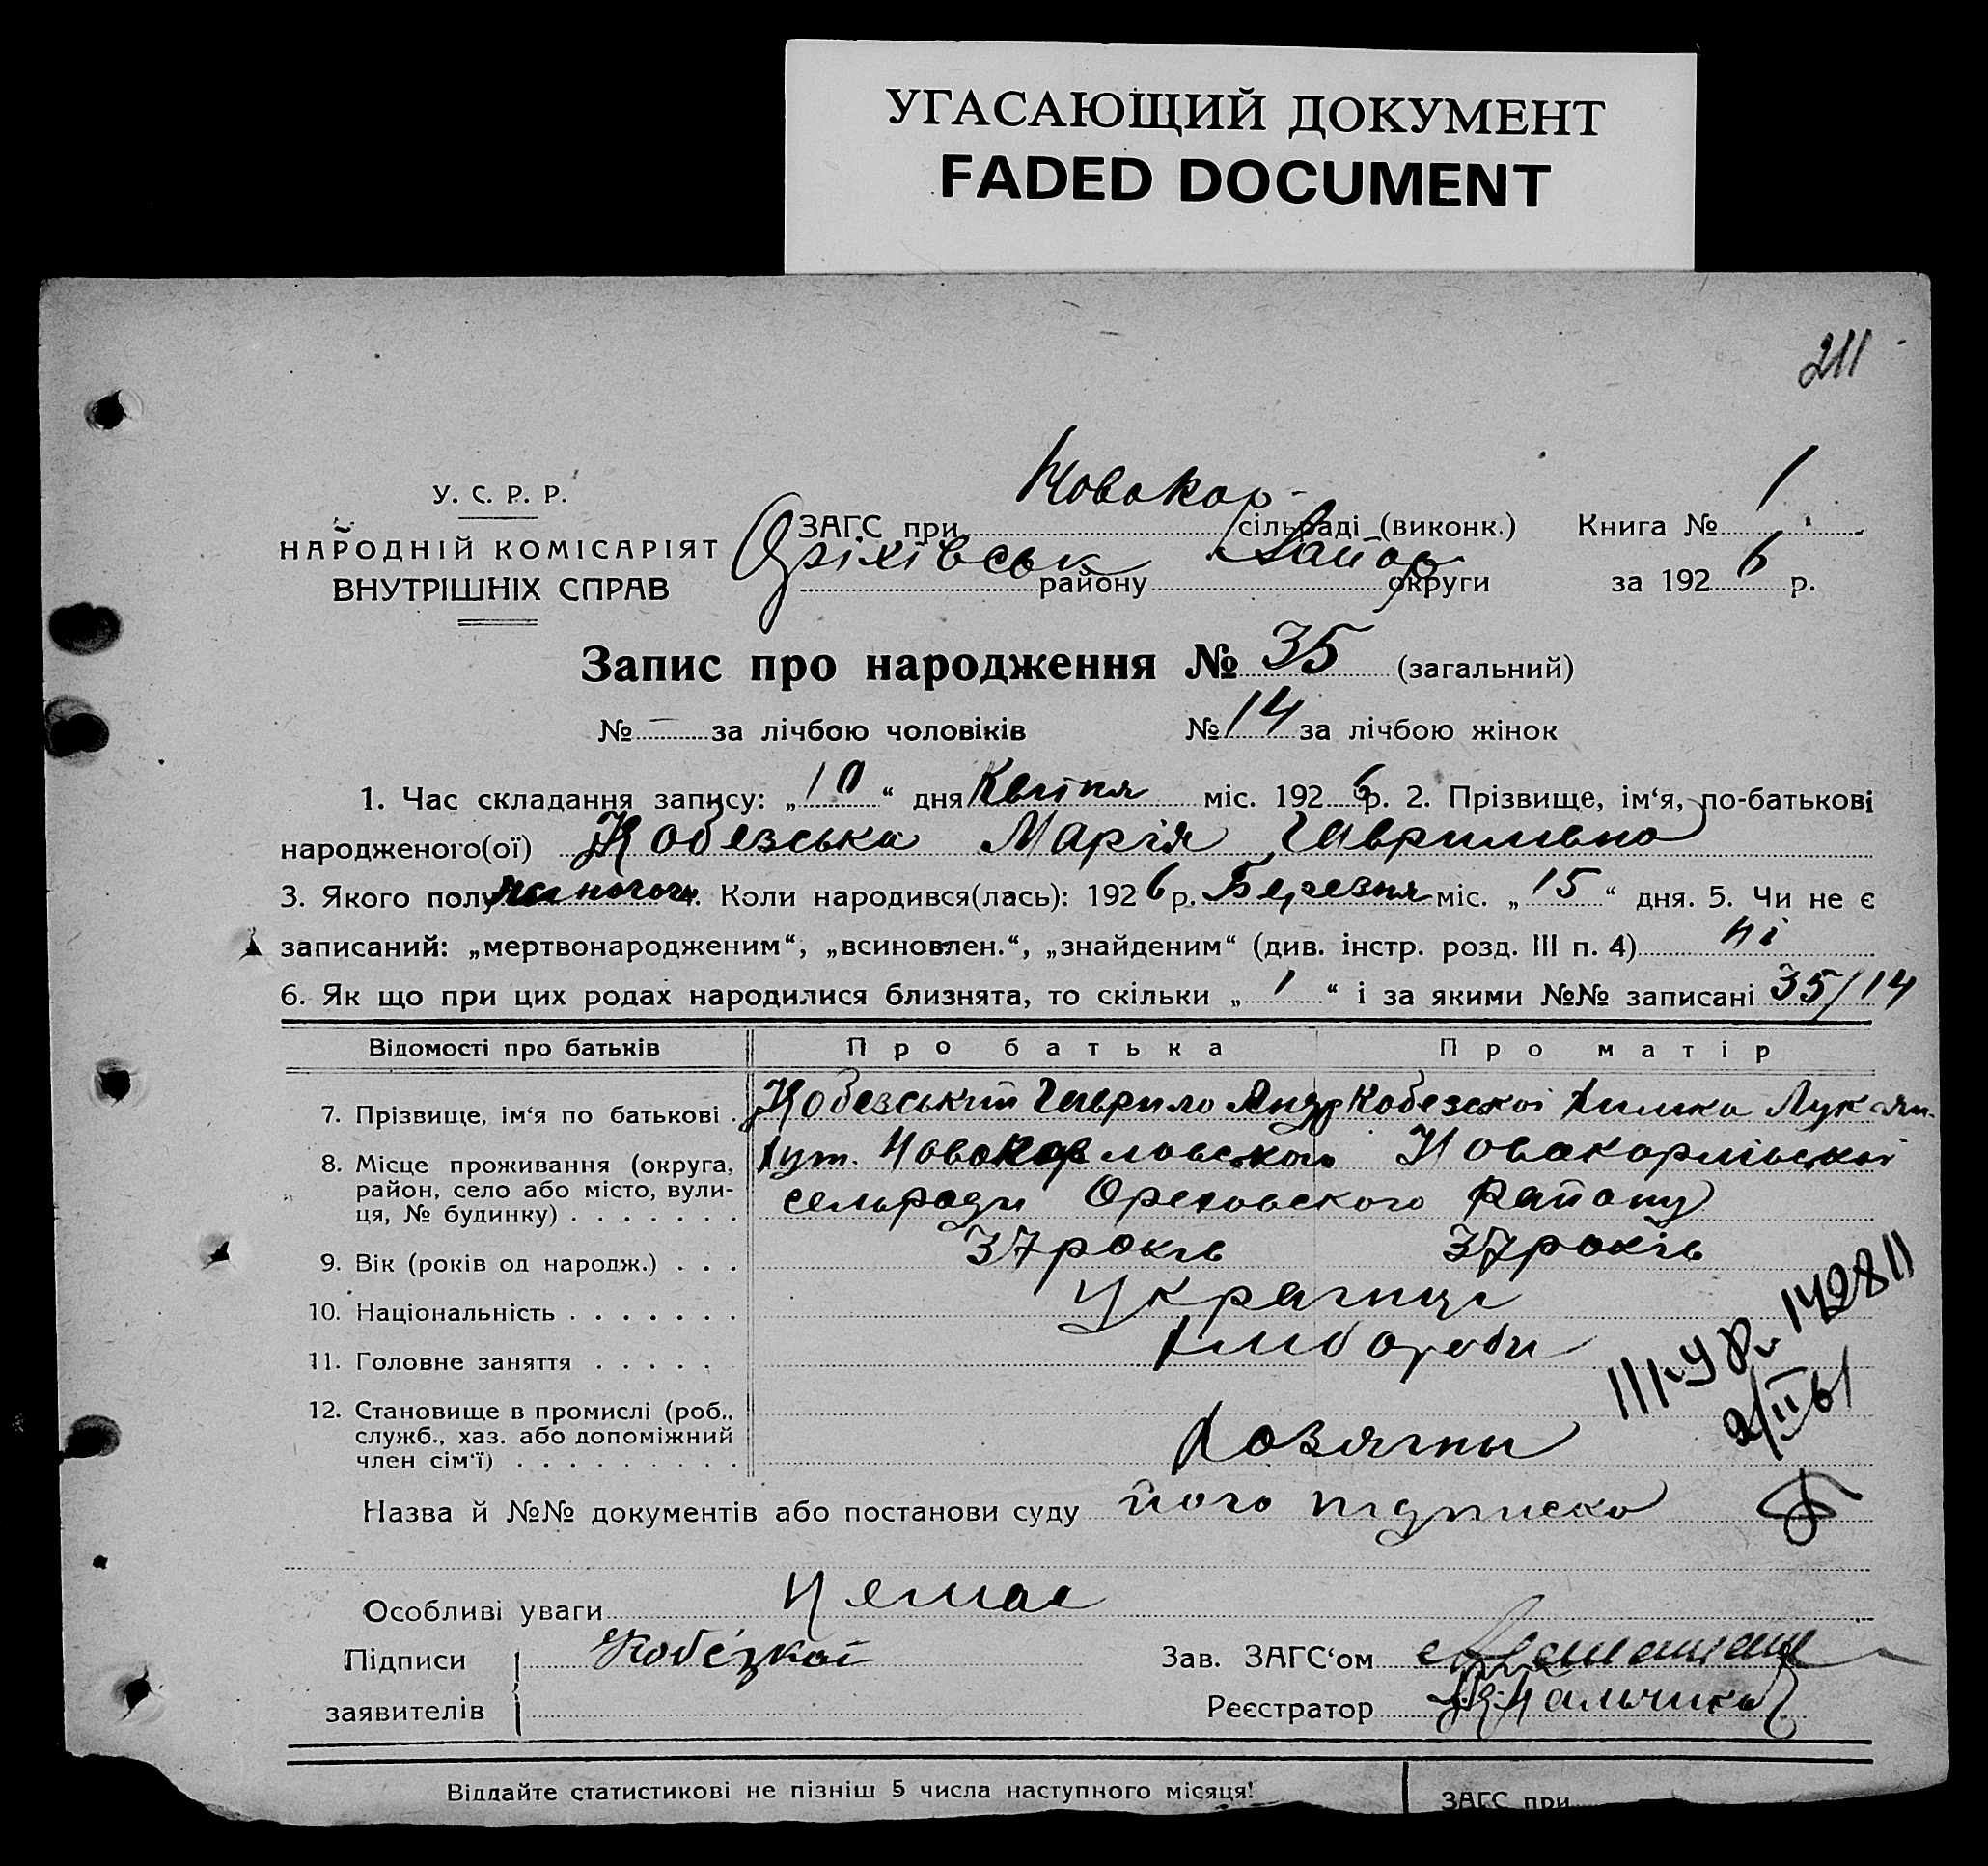 УГАСАЮЩИЙ ДОКУМЕНТ
FADED DOCUMENT
211
У. С. Р. Р.
НАРОДНІЙ КОМІСАРІЯТ
ВНУТРІШНІХ СПРАВ
ЗАГС при Новокар- сільраді (виконк.) Книга № 1
Оріхівськ району Запор округи за 1926 р.
Запис про народження № 35 (загальний)
№ — за лічбою чоловіків № 14 за лічбою жінок
1. Час складання запису: „10“ дня Квітня міс. 1926 р. 2. Прізвище, ім‘я, по-батькові
народженого(ої) Кобезська Марія Гаврилівна
3. Якого полу жіночого 4. Коли народився(лась): 1926 р. Березня міс. „15“ дня. 5. Чи не є
записаний: „мертвонародженим“, „всиновлен.“, „знайденим“ (див. інстр. розд. III п. 4) ні
6. Як що при цих родах народилися близнята, то скільки „1“ і за якими №№ записані 35/14
Відомості про батьків Про батька Про матір
7. Прізвище, ім‘я по батькові . Кобезський Гаврило Андр Кобезської Лукіян.
8. Місце проживання (округа, хут. Новокарловського Новокарлівської
район, село або місто, вули- сельради Ореховского району
ця, № будинку) . . . . . . .
9. Вік (років од народж.) . . . 37 років 37 років
10. Національність . . . . . . . Українці
11. Головне заняття . . . . . Хлібороби
12. Становище в промислі (роб.,
служб., хаз. або допоміжний Хозяїны
член сім‘ї) . . . . . . . . .
142811
2/II 61
Назва й №№ документів або постанови суду його підписка
Особливі уваги Немає
Підписи Зав. ЗАГС‘ом
заявителів Реєстратор
Віддайте статистикові не пізніш 5 числа наступного місяця! ЗАГС при